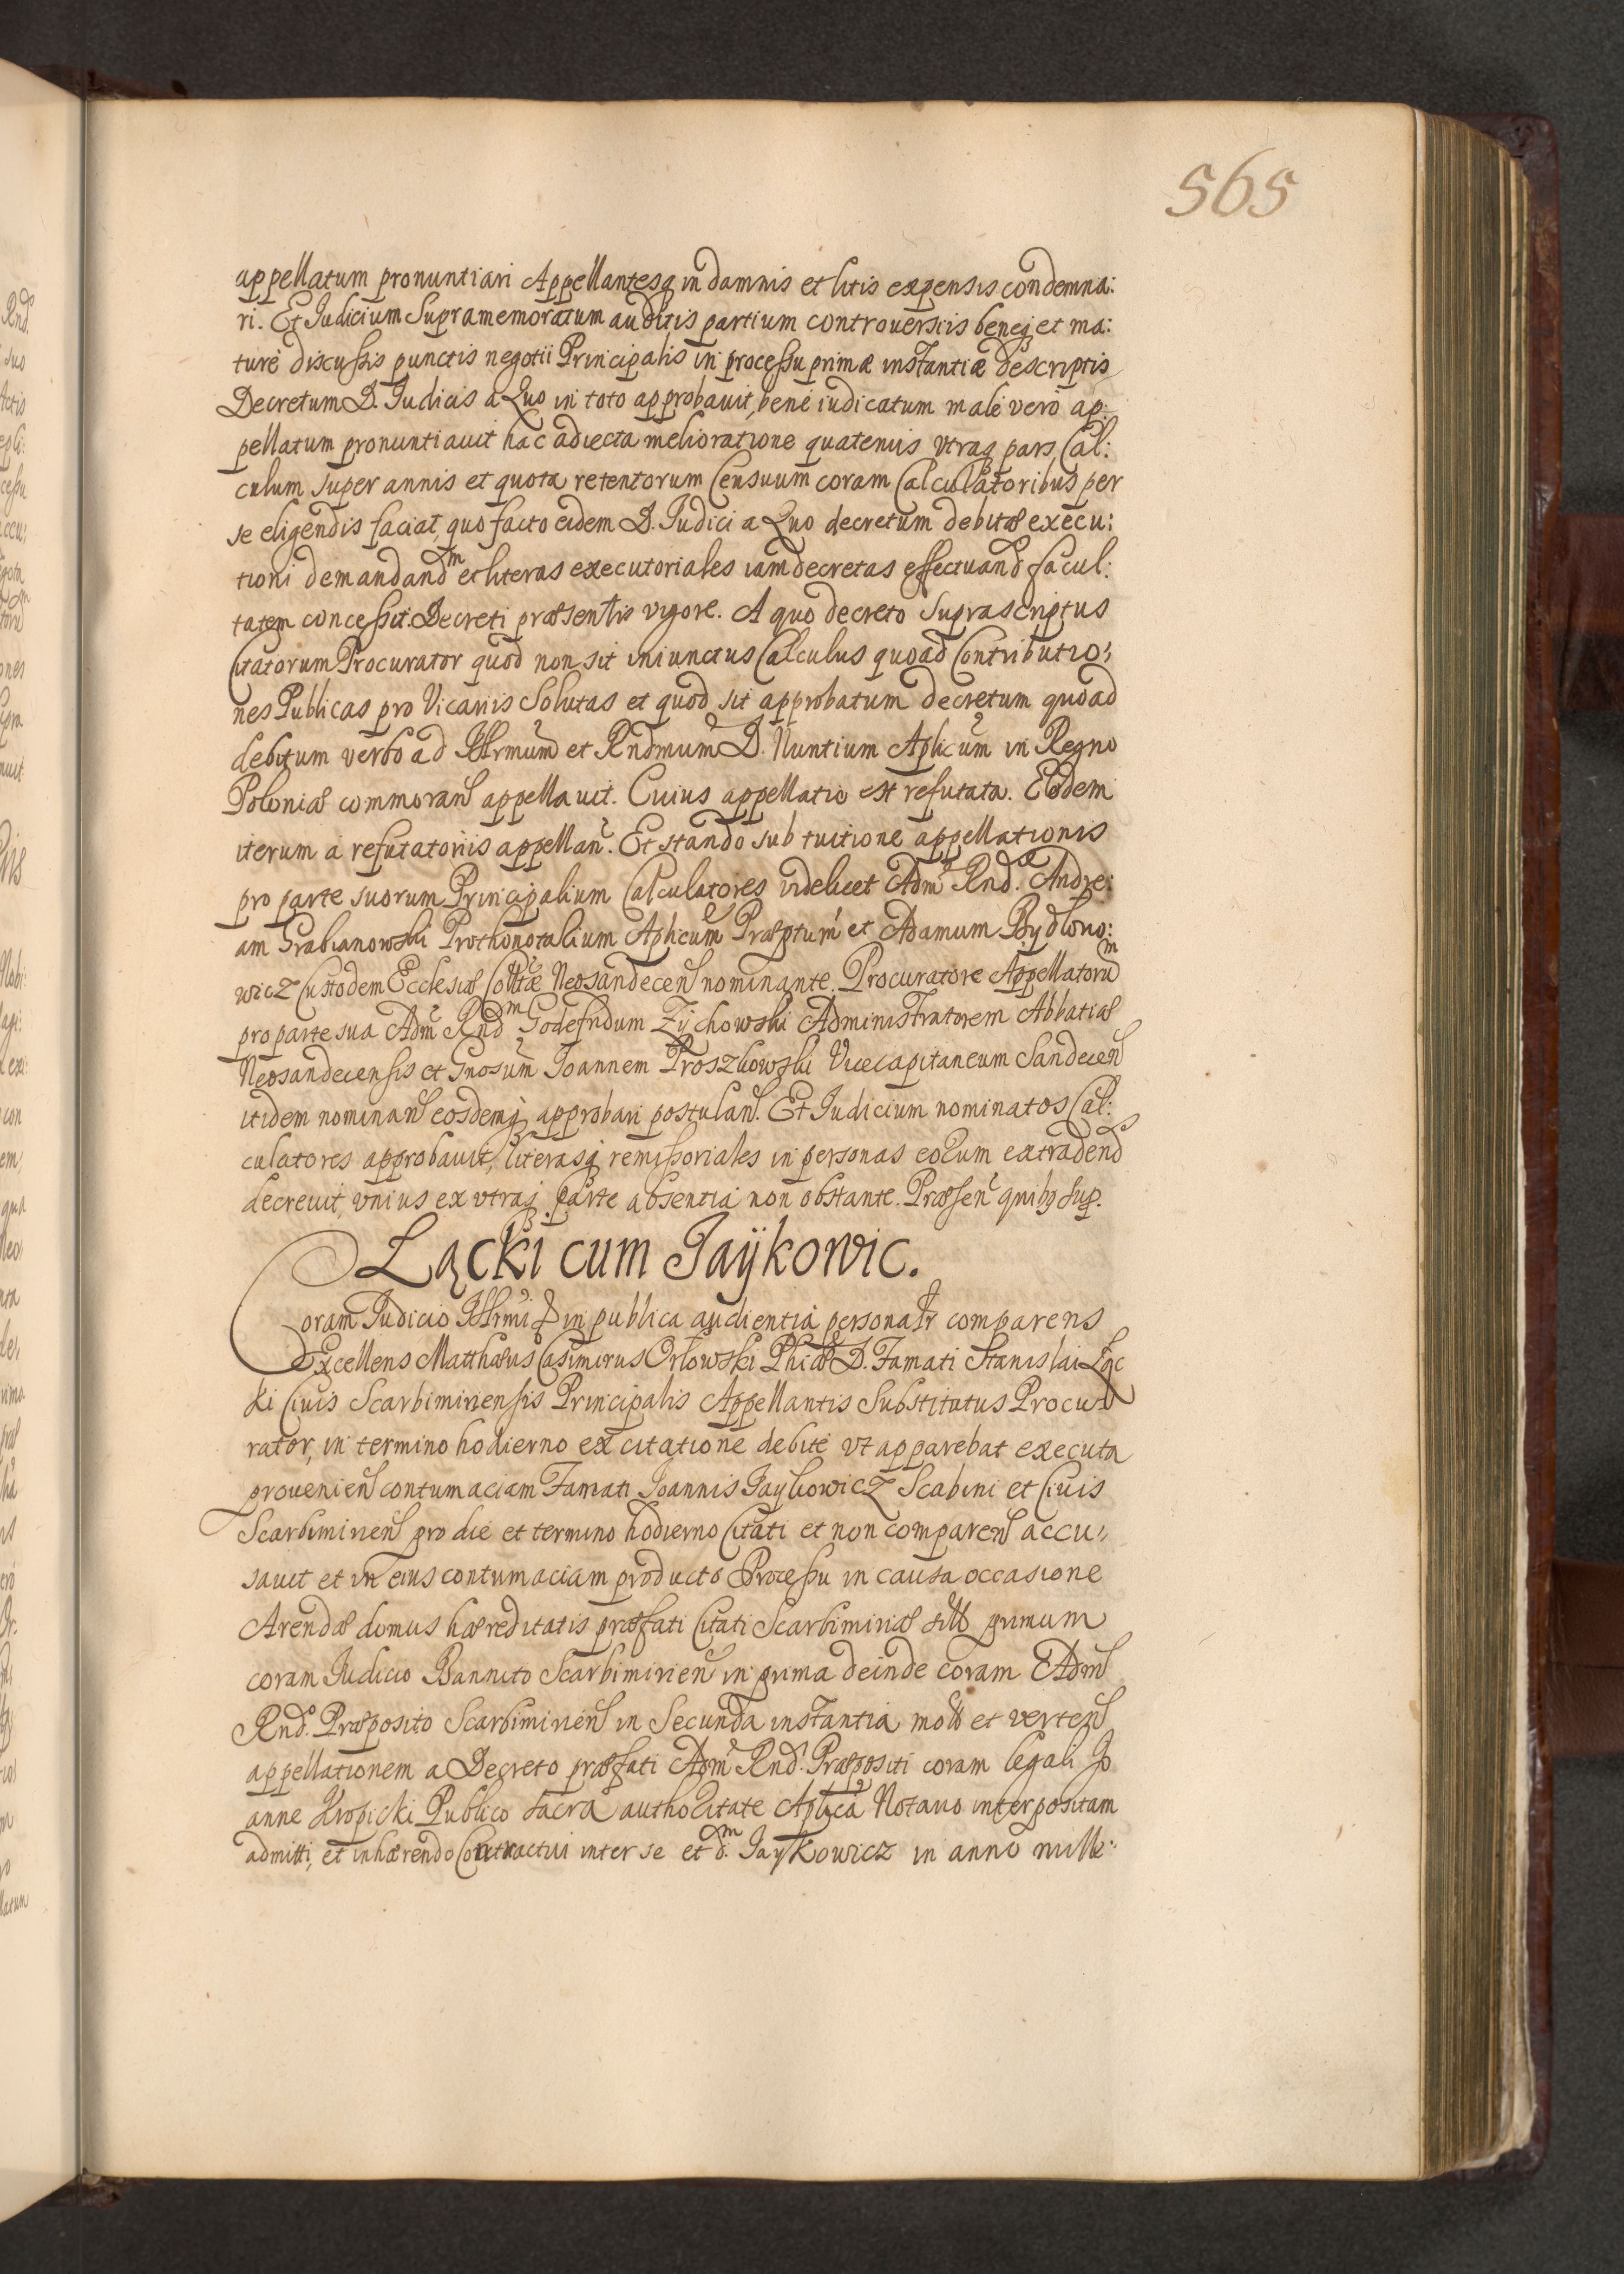 565
appellatum pronuntiari Appellantesq in damnis et litis expensis condemna:
ri. Et Judicium Supramemoratum auditis partium controuersiis beneq et ma:
ture discussis punctis negotii Principalis in processu primæ instantiæ descriptis
Decretum D. Judicis a Quo in toto approbauit, bene iudicatum male vero ap:
pellatum pronuntiauit hac adiecta melioratione quatenus vtraq pars Cal:
culum super annis et quota retentorum Censuum coram Calculatoribus per
se eligendis faciat, quo facto eidem D. Judici a Quo decretum debitæ execu:
tioni demandand et literas executoriales iam decretas effectuand facul:
tatem concessit. Decreti præsentis vigore. A quo decreto Suprascriptus
Citatorum Procurator quod non sit iniunctus Calculus quoad Contributio:
nes Publicas pro Vicariis Solutas et quod sit approbatum decretum quoad
debitum verbo ad Illrmum et Rndmum D. Nuntium Aplicum in Regno
Poloniæ commoran appellauit. Cuius appellatio est refutata. Eodem
iterum a refutatoriis appellan. Et stando sub tuitione appellationis
pro parte suorum Principalium Calculatores videlicet Adm Rnd. Andre:
am Grabianowski Prothonotarium Aplicum Præptum et Adamum Bydlono:
wicz Custodem Ecclesiæ Colltæ Neosandecen nominante. Procuratore Appellatoru
pro parte sua Adm Rnd Godefridum Zychowski Administratorem Abbatiæ
Neosandecensis et Gnosum Joannem Proszkowski Vicecapitaneum Sandecen
itidem nominan eosdemq approbari postulan. Et Judicium nominatos Cal:
culatores approbauit, literasq remissoriales in personas eorum extradend
decreuit, vnius ex vtraq parte absentia non obstante. Præsen quibq sup.
Łącki cum Jaÿkowic.
Coram Judicio Illrmi D in publica audientia personatr comparens
Excellens Matthæus Casimirus Orłowski Phiæ D. Famati Stanislai Łąc
ki Ciuis Scarbimiriensis Principalis Appellantis Substitutus Procu
rator, in termino hodierno ex citatione debite vt apparebat executa
prouenien contumaciam Famati Joannis Jaykowicz Scabini et Ciuis
Scarbimirien pro die et termino hodierno Citati et non comparen accu:
sauit et in eius contumaciam producto Processu in causa occasione
Arendæ domus hæreditatis præfati Citati Scarbimiriæ sitt primum
coram Judicio Bannito Scarbimirien in prima deinde coram Adm
Rnd. Præposito Scarbimirien in Secunda instantia mott et verten
appellationem a Decreto præfati Adm Rnd. Præpositi coram legali Jo
anne Kropicki Publico sacra authoritate Aplica Notario interpositam
admitti, et inhærendo Contractui inter se et d. Jaykowicz in anno mille: